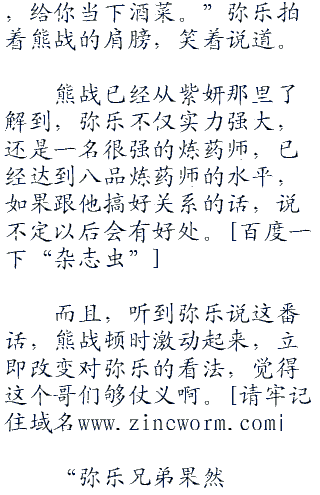 ，给你当下酒菜。”弥乐拍
着熊战的肩膀，笑着说道。
熊战已经从紫妍那里了
解到，弥乐不仅实力强大，
还是一名很强的炼药师，已
经达到八品炼药师的水平，
如果跟他搞好关系的话，说
不定以后会有好处。[百度一
下“杂志虫”]
而且，听到弥乐说这番
话，熊战顿时激动起来，立
即改变对弥乐的看法，觉得
这个哥们够仗义啊。[请牢记
住域名www.zincworm.com]
“弥乐兄弟果然